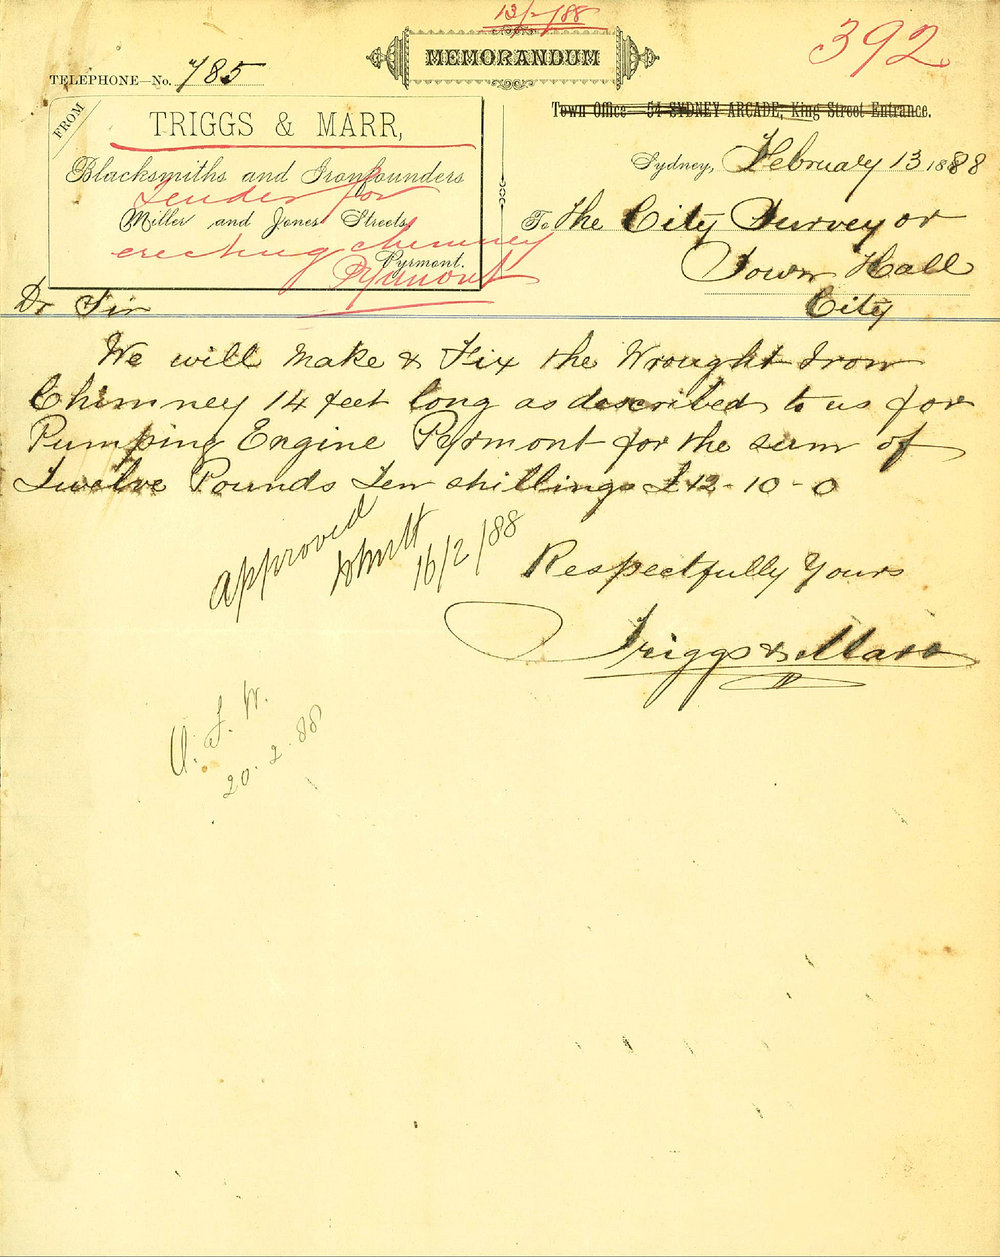 13/2/88
MEMORANDUM
392
TELEPHONE—No. 785
FROM
TRIGGS & MARR,
Blacksmiths and Ironfounders
Miller and Jones Streets,
Pyrmont.
Tender for
erecting chimney
Pyrmont
Town Office—54 SYDNEY ARCADE, King Street Entrance.
Sydney, February 13 1888
To The City Surveyor
Town Hall
City
Dr Sir
We will Make & Fix the Wrought Iron
Chimney 14 feet long as described to us for
Pumping Engine Pyrmont for the sum of
Twelve Pounds Ten shillings £12-10-0
Approved
16/2/88
Respectfully Yours
Triggs & Marr
20.2.88